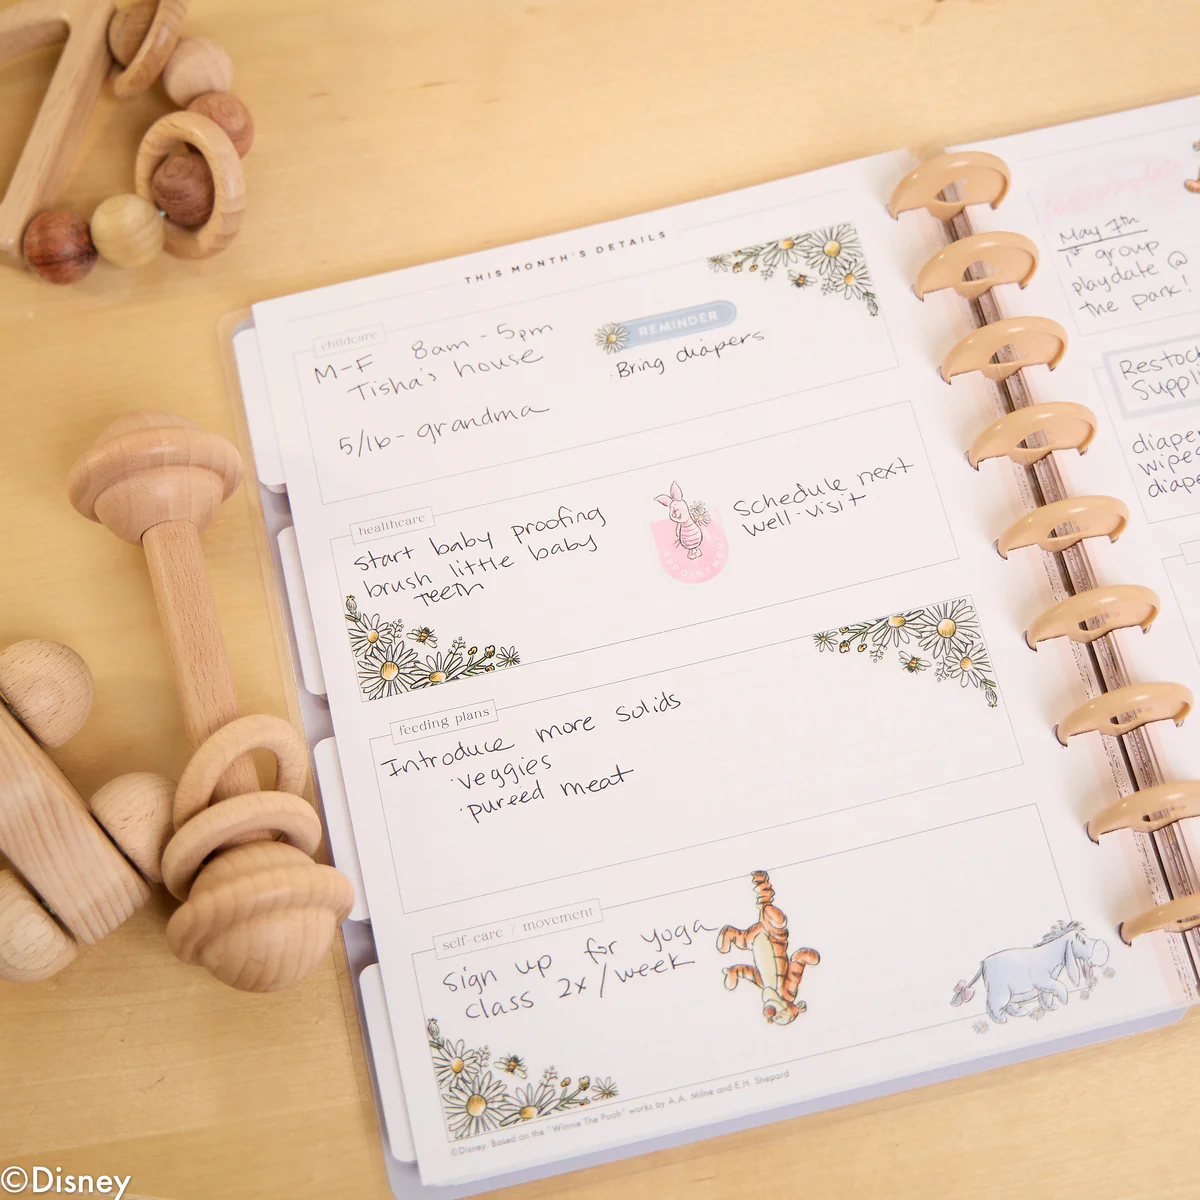 THIS MONTH'S DETAILS
childcare
M-F 8am-5pm
Tisha's house
5/16- grandma
REMINDER
· Bring diapers
healthcare
start baby proofing
brush little baby
teeth
APPOINTMENT
Schedule next
well-visit
feeding plans
Introduce more solids
· veggies
· pureed meat
self-care / movement
sign up for yoga
class 2x/week
©Disney. Based on the "Winnie The Pooh" works by A.A. Milne and E.H. Shepard
May 7th
1st group
playdate @
the park!
Restock
Suppli
diaper
wipes
diape
©Disney